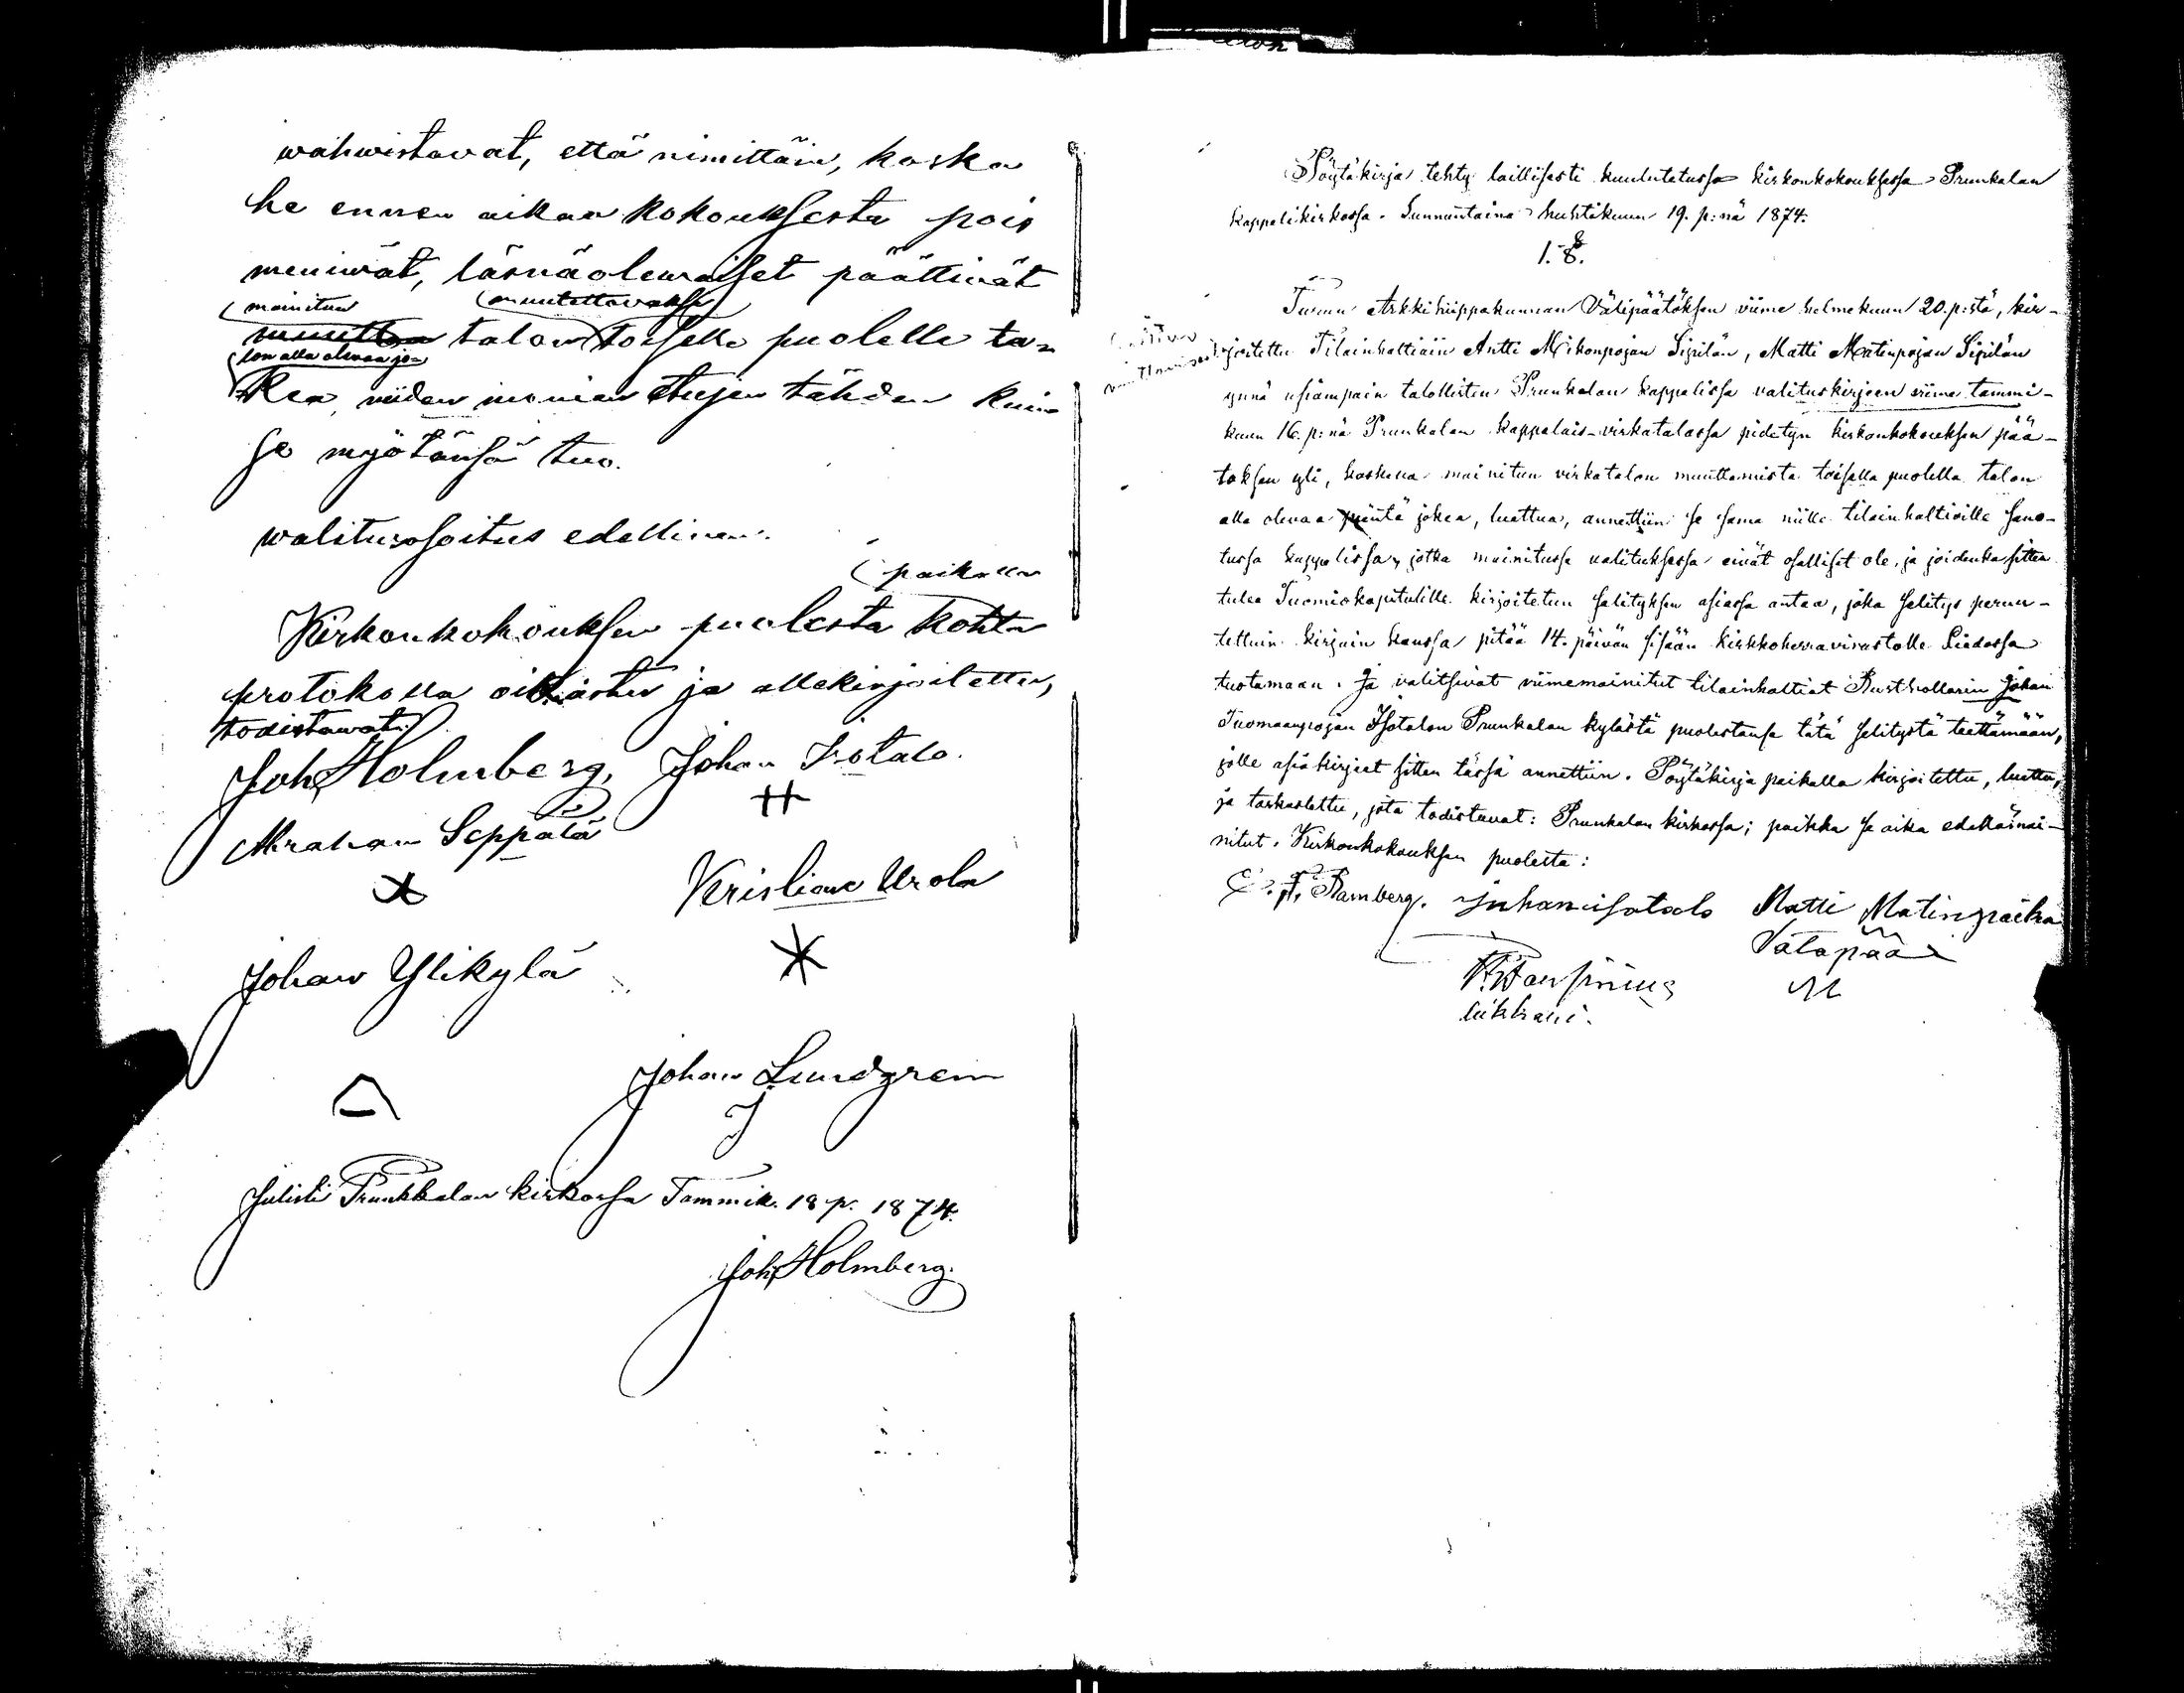 wahwistavat, että nimittäin, koska
he ennen aikaa kokouksesta pois
meniwät, läsnäolewaiset päättiwät
mainitun muutettavaksi
talon toiselle puolelle ta-
lon alla olevaa jo-
kea, niiden monien etujen tähden kuin
se myötänsä tuo.
walitusosoitus edellinen.
paikalla
Kirkonkokouksen puolesta kohta
protokolla oikiastu ja allekirjoitettu,
todistawat:
Joh. Holmberg, Johan Isotalo.
Abraham Seppälä
Kristian Urola
Johan Ylikylä
Johan Lundgren
J
Julisti Prunkkalan kirkossa Tammik. 18 p. 1874.
Joh. Holmberg.
Pöytäkirja tehty laillisesti kuulutetussa kirkonkokouksessa Prunkalan
kappelikirkossa Sunnuntaina huhtikuun 19. p:nä 1874.
1. §.
Turun Arkkihiippakunnan Välipäätöksen viime helmekuun 20. p:stä, kir-
joitettu Tilainhaltiain Antti Mikonpojan Sipilän, Matti Matinpojan Sipilän
ynnä usiampain talollisten Prunkalan kappelissa valituskirjeen viime tammi-
kuun 16. p:nä Prunkalan kappalais-virkatalossa pidetyn kirkonkokouksen pää-
töksen yli, koskeva mainitun virkatalon muuttamista toisella puolella talon
alla olevaa jokea, luettua, annettiin se sama niille tilainhaltioille sano-
tussa kappelissa, jotka mainitussa valituksessa eivät osalliset ole, ja joidenka sitten
tulee Tuomiokapitulille kirjoitetun selityksen asiassa antaa, joka selitys perus-
tettuin kirjain kanssa pitää 14. päivän sisään kirkkoherravirastolle Liedossa
tuotamaan. Ja valitsivat viimemainitut tilainhaltiat Rusthollarin Johan
Tuomaanpojan Isotalon Prunkalan kylästä puolestansa tätä selitystä teettämään,
jolle asiakirjeet sitten tässä annettiin. Pöytäkirja paikalla kirjoitettu, luettu,
ja tarkastettu, jota todistavat: Prunkalan kirkossa; paikka ja aika edellämai-
nitut. Kirkonkokouksen puolesta:
F. Ramberg. Juhan isotalo Matti Matinpoika
Vätäpää
M